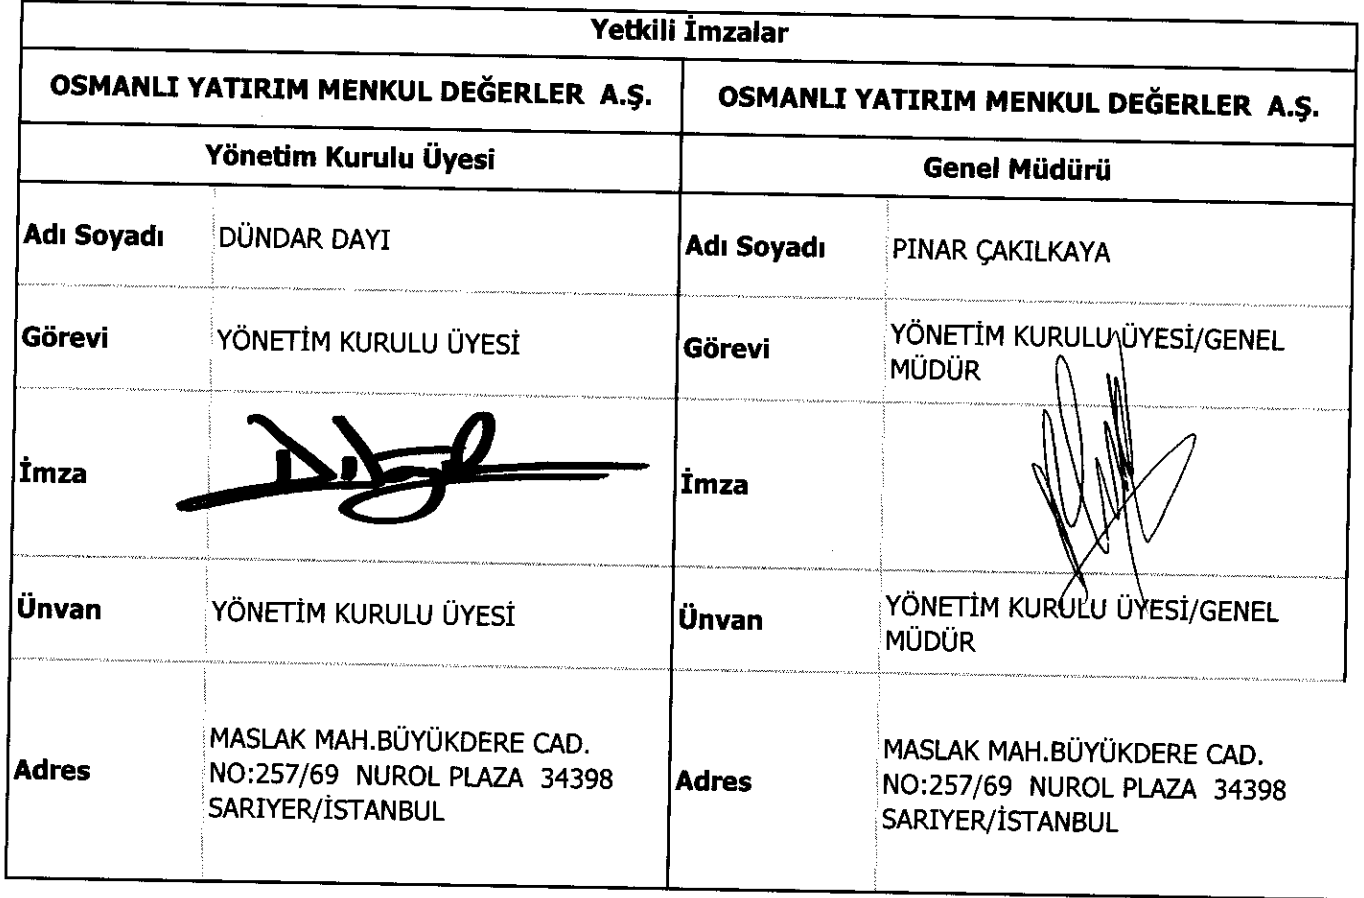 Yetkili İmzalar
OSMANLI YATIRIM MENKUL DEĞERLER A.Ş.
OSMANLI YATIRIM MENKUL DEĞERLER A.Ş.
Yönetim Kurulu Üyesi
Genel Müdürü
Adı Soyadı
DÜNDAR DAYI
Adı Soyadı
PINAR ÇAKILKAYA
Görevi
YÖNETİM KURULU ÜYESİ
Görevi
YÖNETİM KURULU ÜYESİ/GENEL
MÜDÜR
İmza
İmza
Ünvan
YÖNETİM KURULU ÜYESİ
Ünvan
YÖNETİM KURULU ÜYESİ/GENEL
MÜDÜR
Adres
MASLAK MAH.BÜYÜKDERE CAD.
NO:257/69 NUROL PLAZA 34398
SARIYER/İSTANBUL
Adres
MASLAK MAH.BÜYÜKDERE CAD.
NO:257/69 NUROL PLAZA 34398
SARIYER/İSTANBUL